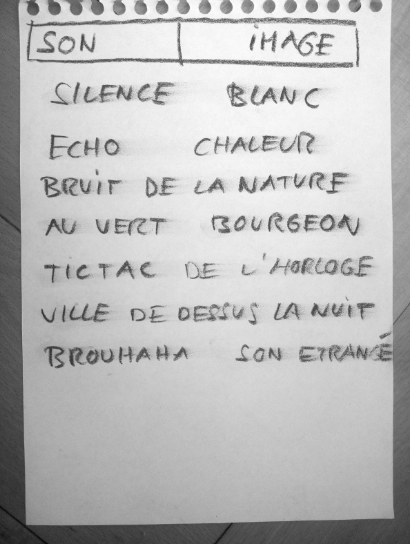 SON IMAGE
SILENCE BLANC
ECHO CHALEUR
BRUIT DE LA NATURE
AU VERT BOURGEON
TICTAC DE L'HORLOGE
VILLE DE DESSUS LA NUIT
BROUHAHA SON ETRANGÉ